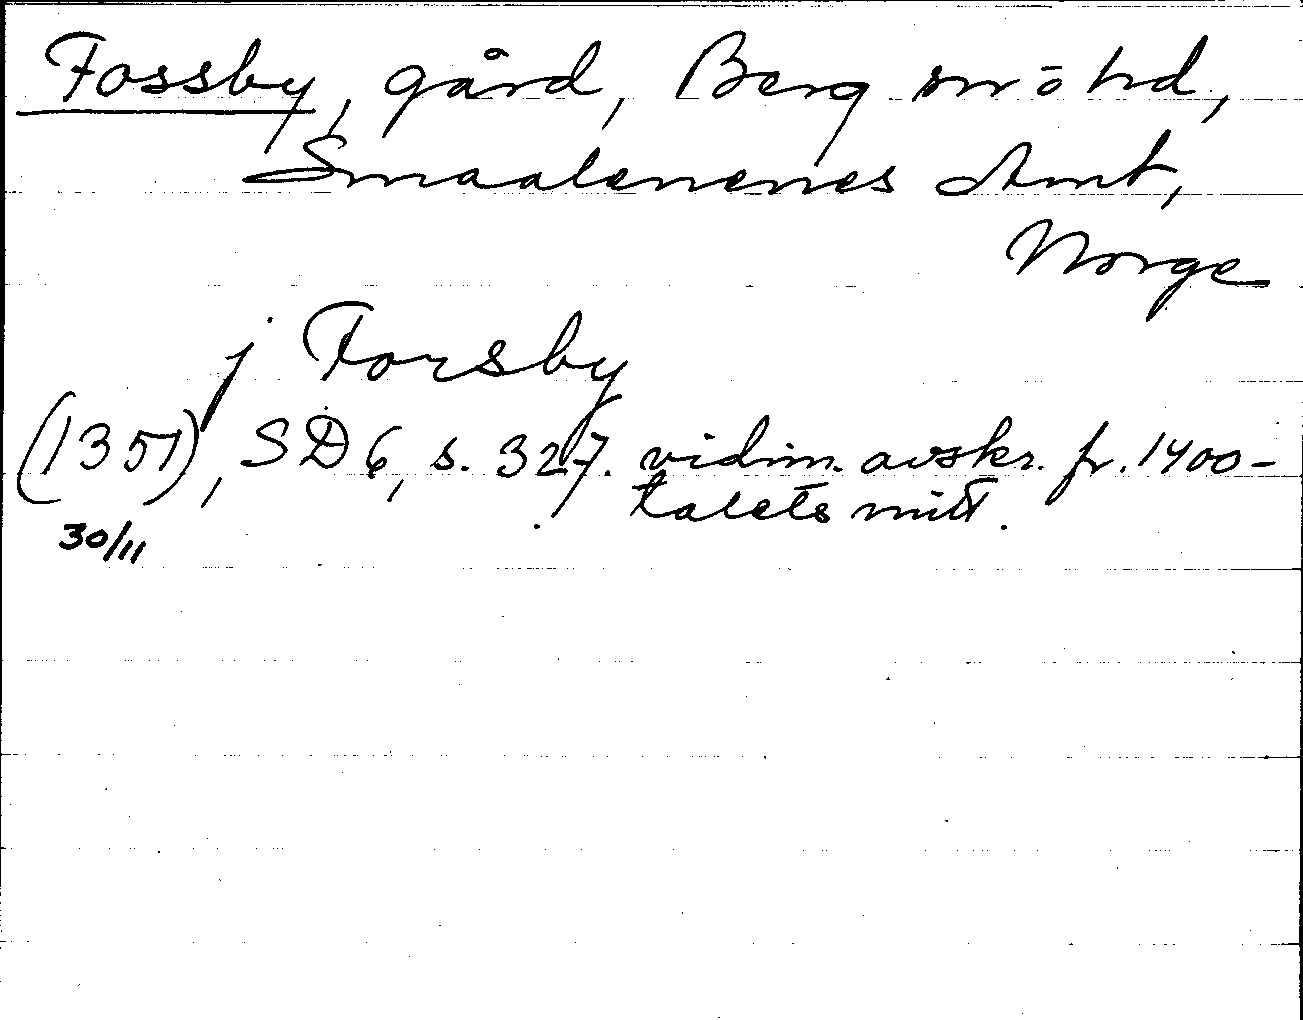 Fossby, gård, Berg sn o hd,
Smaalenenes Amt,
Norge
j Forsby
(1351), SD 6, s. 327. vidim. avskr. fr. 1400-
talets mitt.
30/11